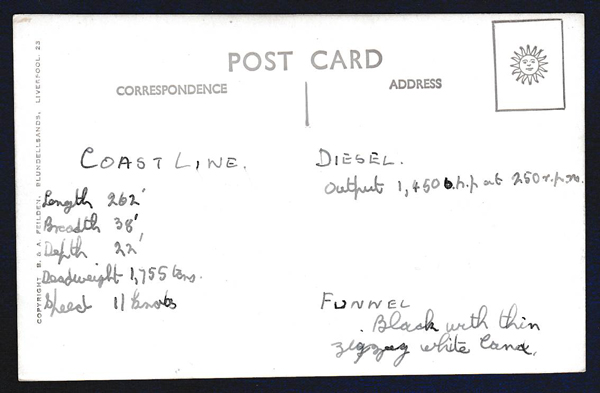 POST CARD
CORRESPONDENCE
ADDRESS
COPYRIGHT B. & A. FEILDEN, BLUNDELLSANDS, LIVERPOOL, 23
COAST LINE.
Length 262'
Breadth 38'
Depth 22'
Deadweight 1,755 tons.
Speed 11 knots
DIESEL.
Output 1,450 b.h.p at 250 r.p.m.
FUNNEL
Black with thin
zigzag white band.